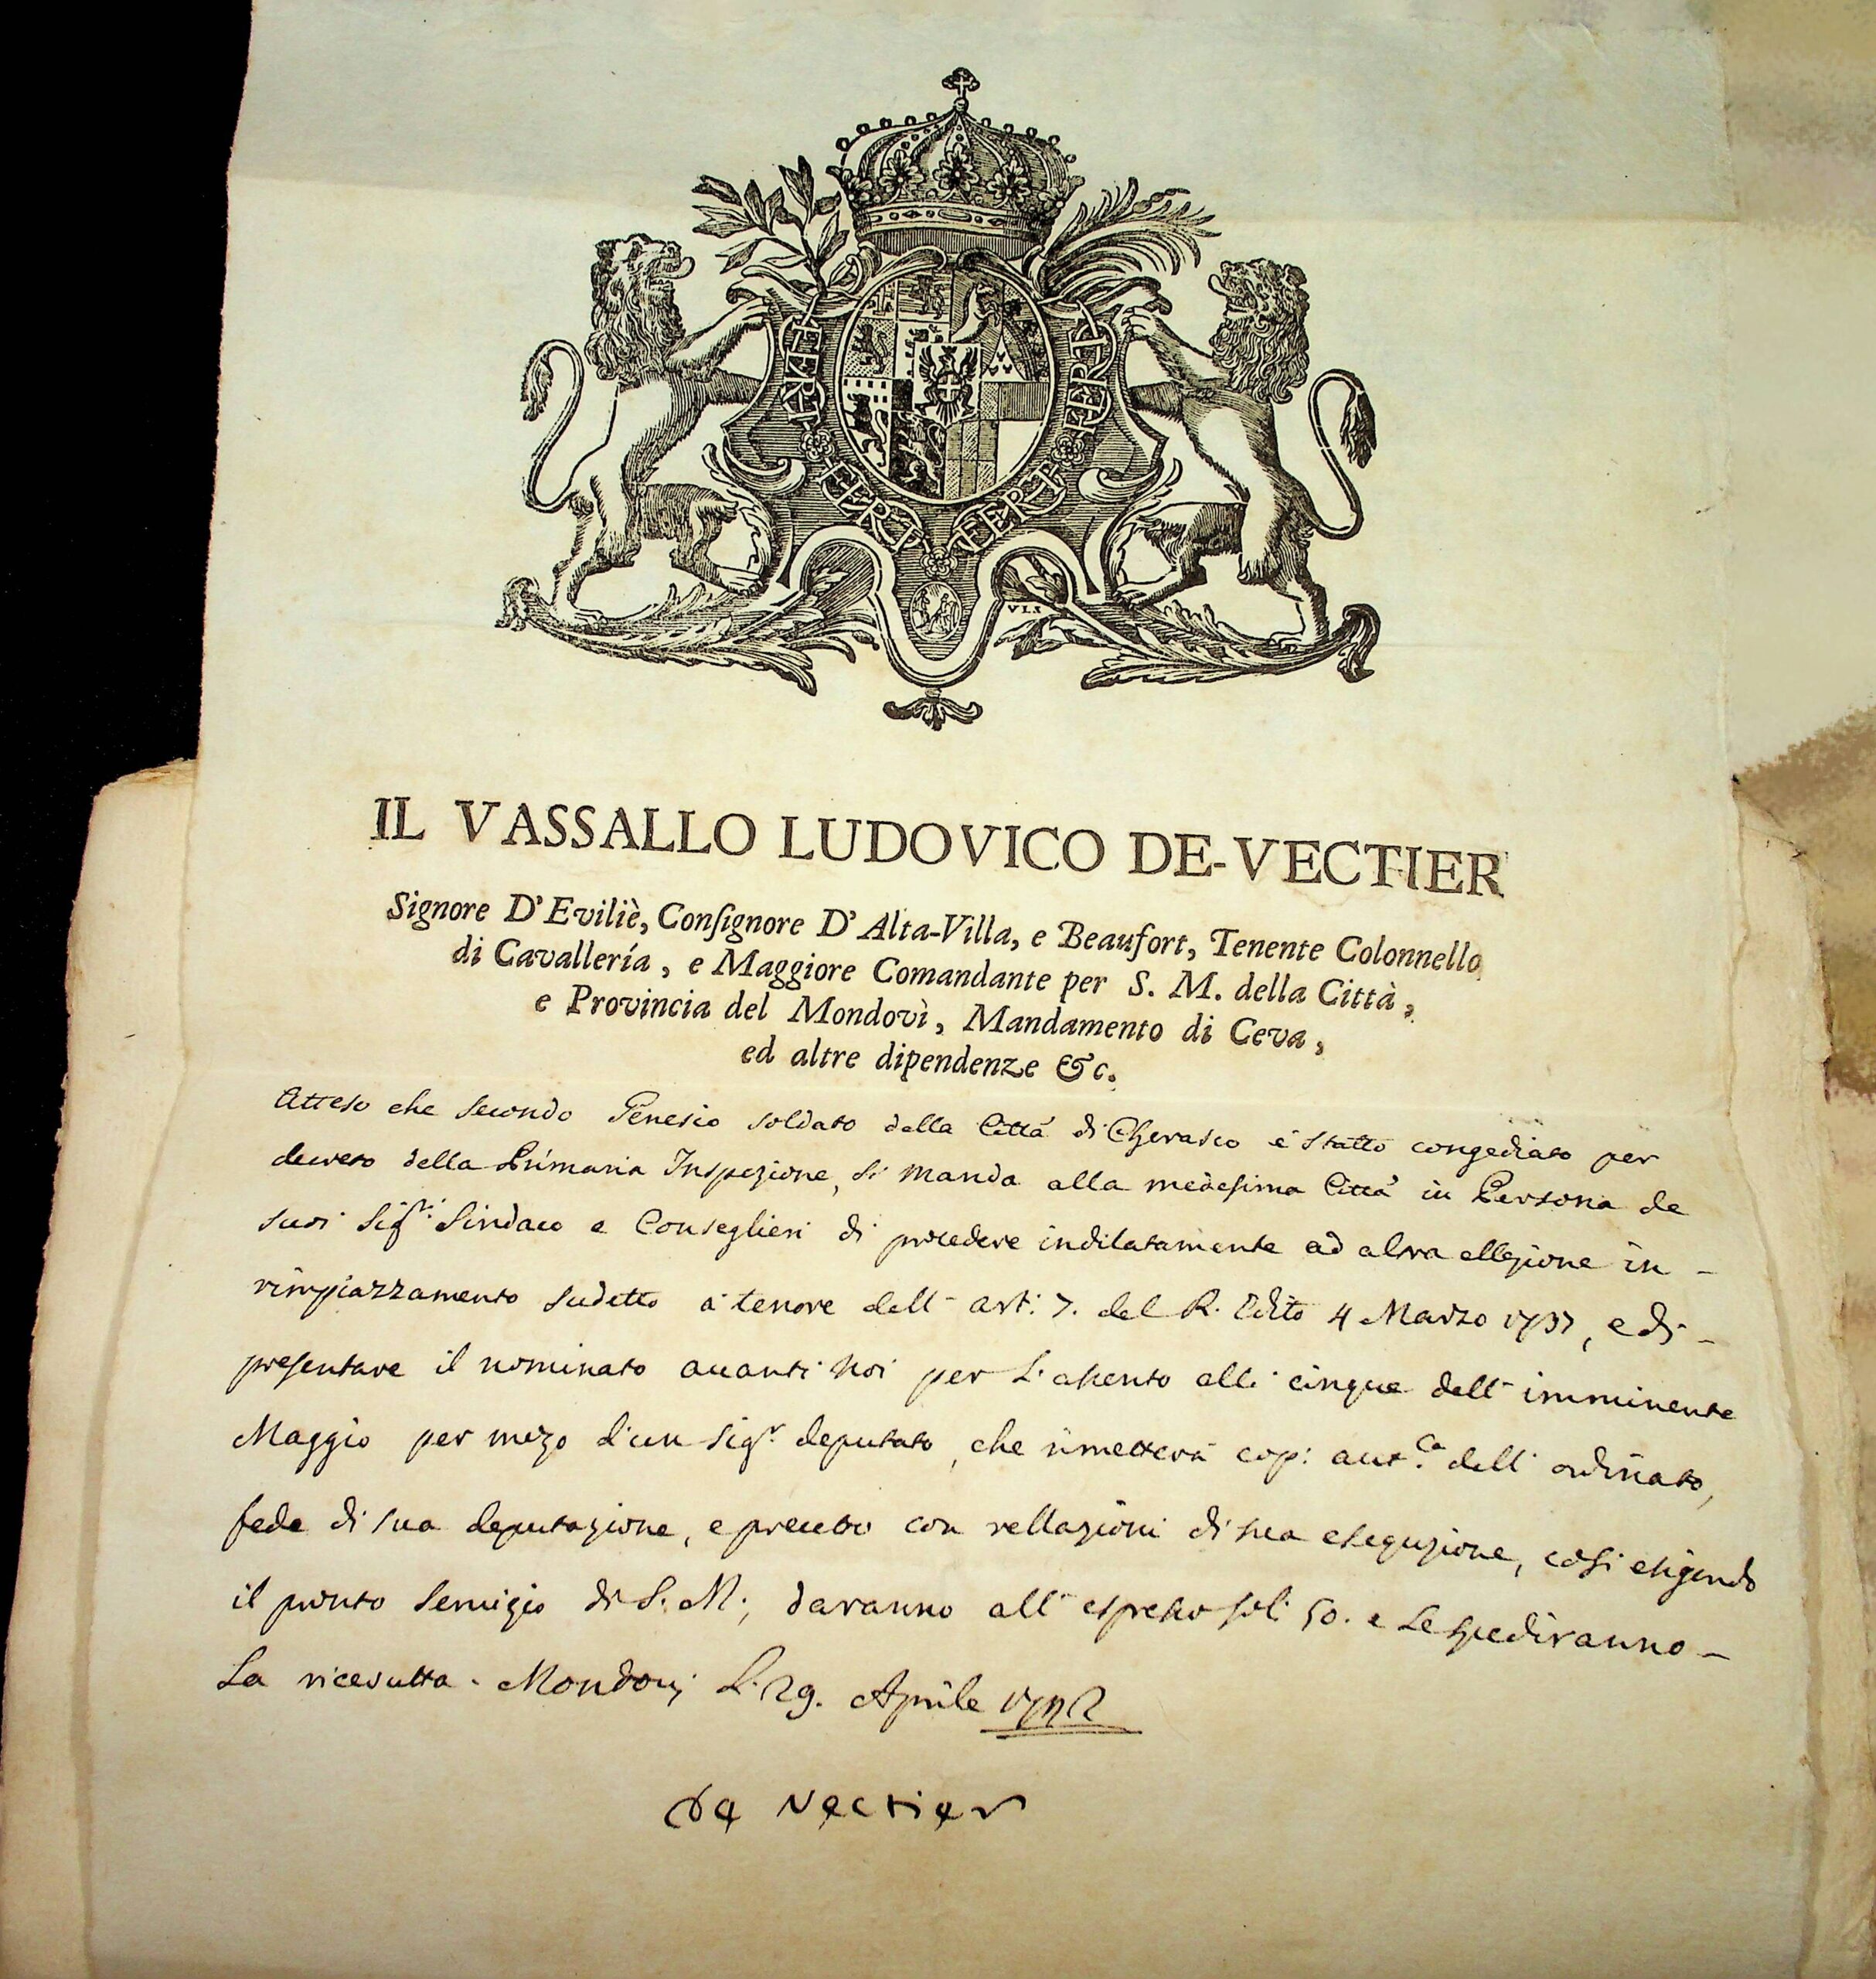 FERT
FERT
FERT
FERT
VLS
IL VASSALLO LUDOVICO DE-VECTIER
Signore D'Eviliè, Conſignore D'Alta-Villa, e Beaufort, Tenente Colonnello
di Cavallería, e Maggiore Comandante per S. M. della Città,
e Provincia del Mondovì, Mandamento di Ceva,
ed altre dipendenze &c.
Atteso che Secondo Genesio soldato della Città di Cherasco è statto congediato per
decreto della Primaria Inspezione, si manda alla medesima Città in Persona de
suoi Sig.ri Sindaco e Conseglieri di procedere indilatamente ad altra ellezione in -
rimpiazzamento sudetto a tenore dell' art: 7. del R. Edito 4 Marzo 1737, e di -
presentare il nominato auanti Noi per l'assento alli cinque dell' imminente
Maggio per mezo d'un Sigr. deputato, che rimetterà cop: aut.ca dell' ordinato,
fede di sua deputazione, e precetto con rellazioni di sua esequzione, cosi esigendo
il pronto Seruizio di S. M.; daranno all' espresso soli 50. e le spediranno -
La riceuutta - Mondovj L. 29. Aprile
De Vectier